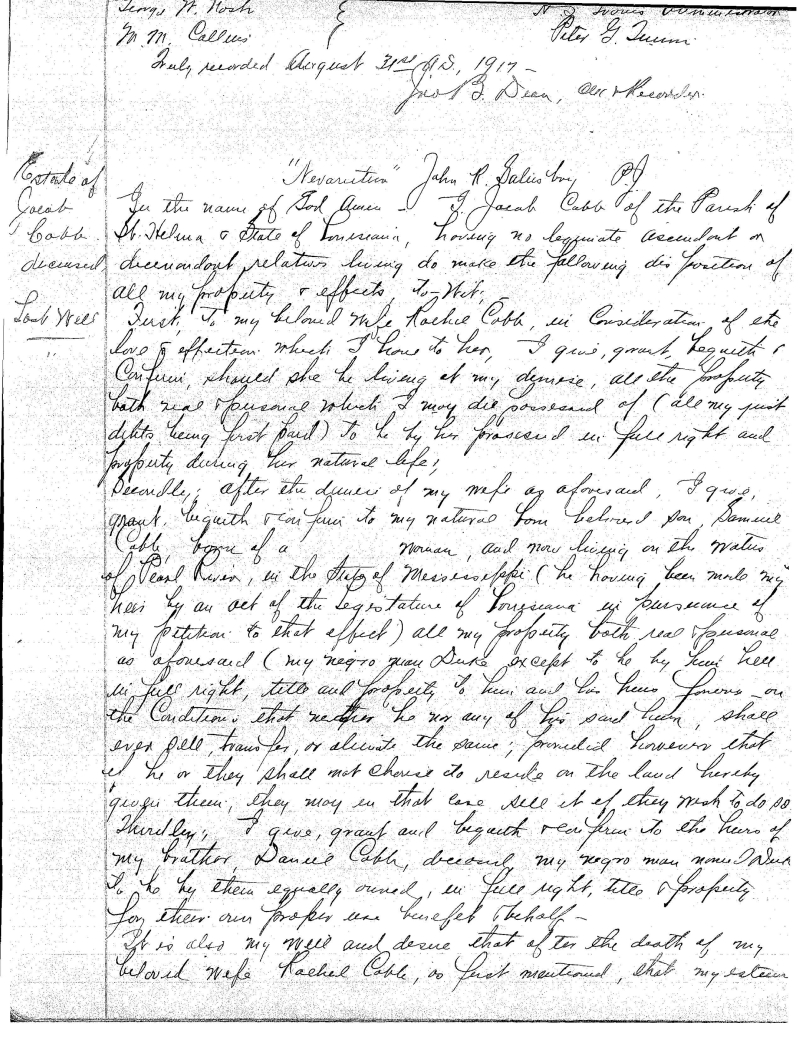 George W. Nosh
N J Travis Administrator
M. M. Callins
Peter G. Quinn
Truly recorded August 31st A.D., 1917 –
Jno. B. Deen, Clk & Recorder.
Estate of
Jacob
Cobb
deceased,
Last Will
"Nevarictim" John R. Galinsboy P.J
In the name of God Amen – I Jacob Cobb of the Parish of
St. Helena & State of Louisiana, having no legimate ascendant or
decendant relatives living do make the following disposition of
all my property & effects, to-Wit, –
First, To my beloved Wife Rachel Cobb, in Consideration of the
love & effection which I have to her, I give, grant, bequith &
Confirm, should she be living at my demise, all the property
both real & personal which I may die possessed of (all my just
debts being first paid) To be by her possessed in full right and
property during her natural life;
Secondly, after the demise of my wife as aforesaid, I give,
grant, bequith & confirm to my natural born beloved son, Samuel
Cobb, born of a woman, and now living on the Waters
of Pearl River, in the State of Mississippi (he having been made my
heir by an act of the Legestature of Louisiana in pursuance of
my petition to that effect) all my property both real & personal
as aforesaid (my negro man Duke except to be by him held
in full right, title and property to him and his heirs forever – on
the Conditions that neither he nor any of his said heirs, shall
ever sell, transfer, or alienate the same; provided however that
if he or they shall not choose to reside on the land hereby
given them, they may in that case sell it if they wish to do so
Thirdly, I give, grant and bequith & confirm to the heirs of
my brother, Daniel Cobb, deceased, my negro man named Duke
To be by them equally owned, in full right, title & property
for their own proper use benefit & behalf –
It is also my will and desire that after the death of my
beloved wife Rachel Cobb, as first mentioned, that my esteem